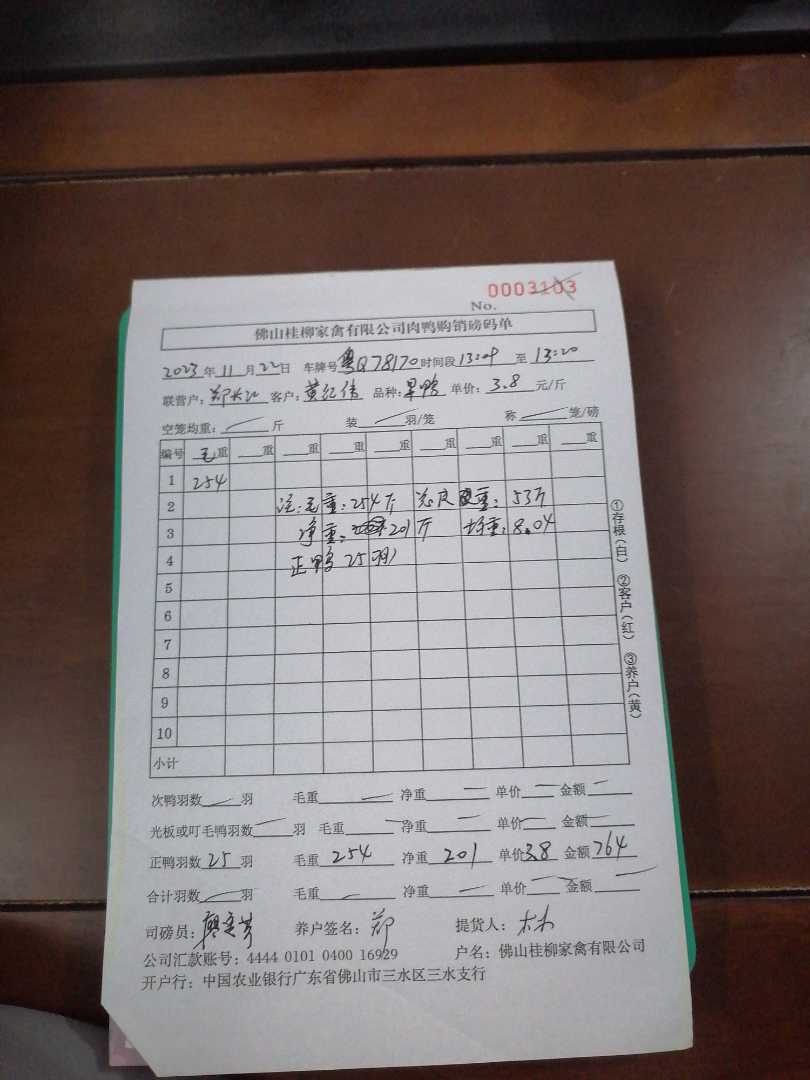 0003103
No.
佛山桂柳家禽有限公司肉鸭购销磅码单
2023年11月22日 车牌号粤Q78170时间段13:09 至 13:20
联营户: 客户:黄纪伟 品种: 单价:3.8 元/斤
空笼均重: 斤 装 羽/笼 称 笼/磅
编号 毛重 重 重 重 重 重 重 重 重
1 254
2 注:毛重:254斤 重:53斤
3 净重: 201斤 均重:8.04
4 正鸭25羽
5
6
7
8
9
10
小计
①存根(白) ②客户(红) ③养户(黄)
次鸭羽数 羽 毛重 净重 单价 金额
光板或叮毛鸭羽数 羽 毛重 净重 单价 金额
正鸭羽数25羽 毛重254 净重201 单价3.8 金额764
合计羽数 羽 毛重 净重 单价 金额
司磅员: 养户签名:郑 提货人:
公司汇款账号:4444 0101 0400 16929 户名:佛山桂柳家禽有限公司
开户行:中国农业银行广东省佛山市三水区三水支行